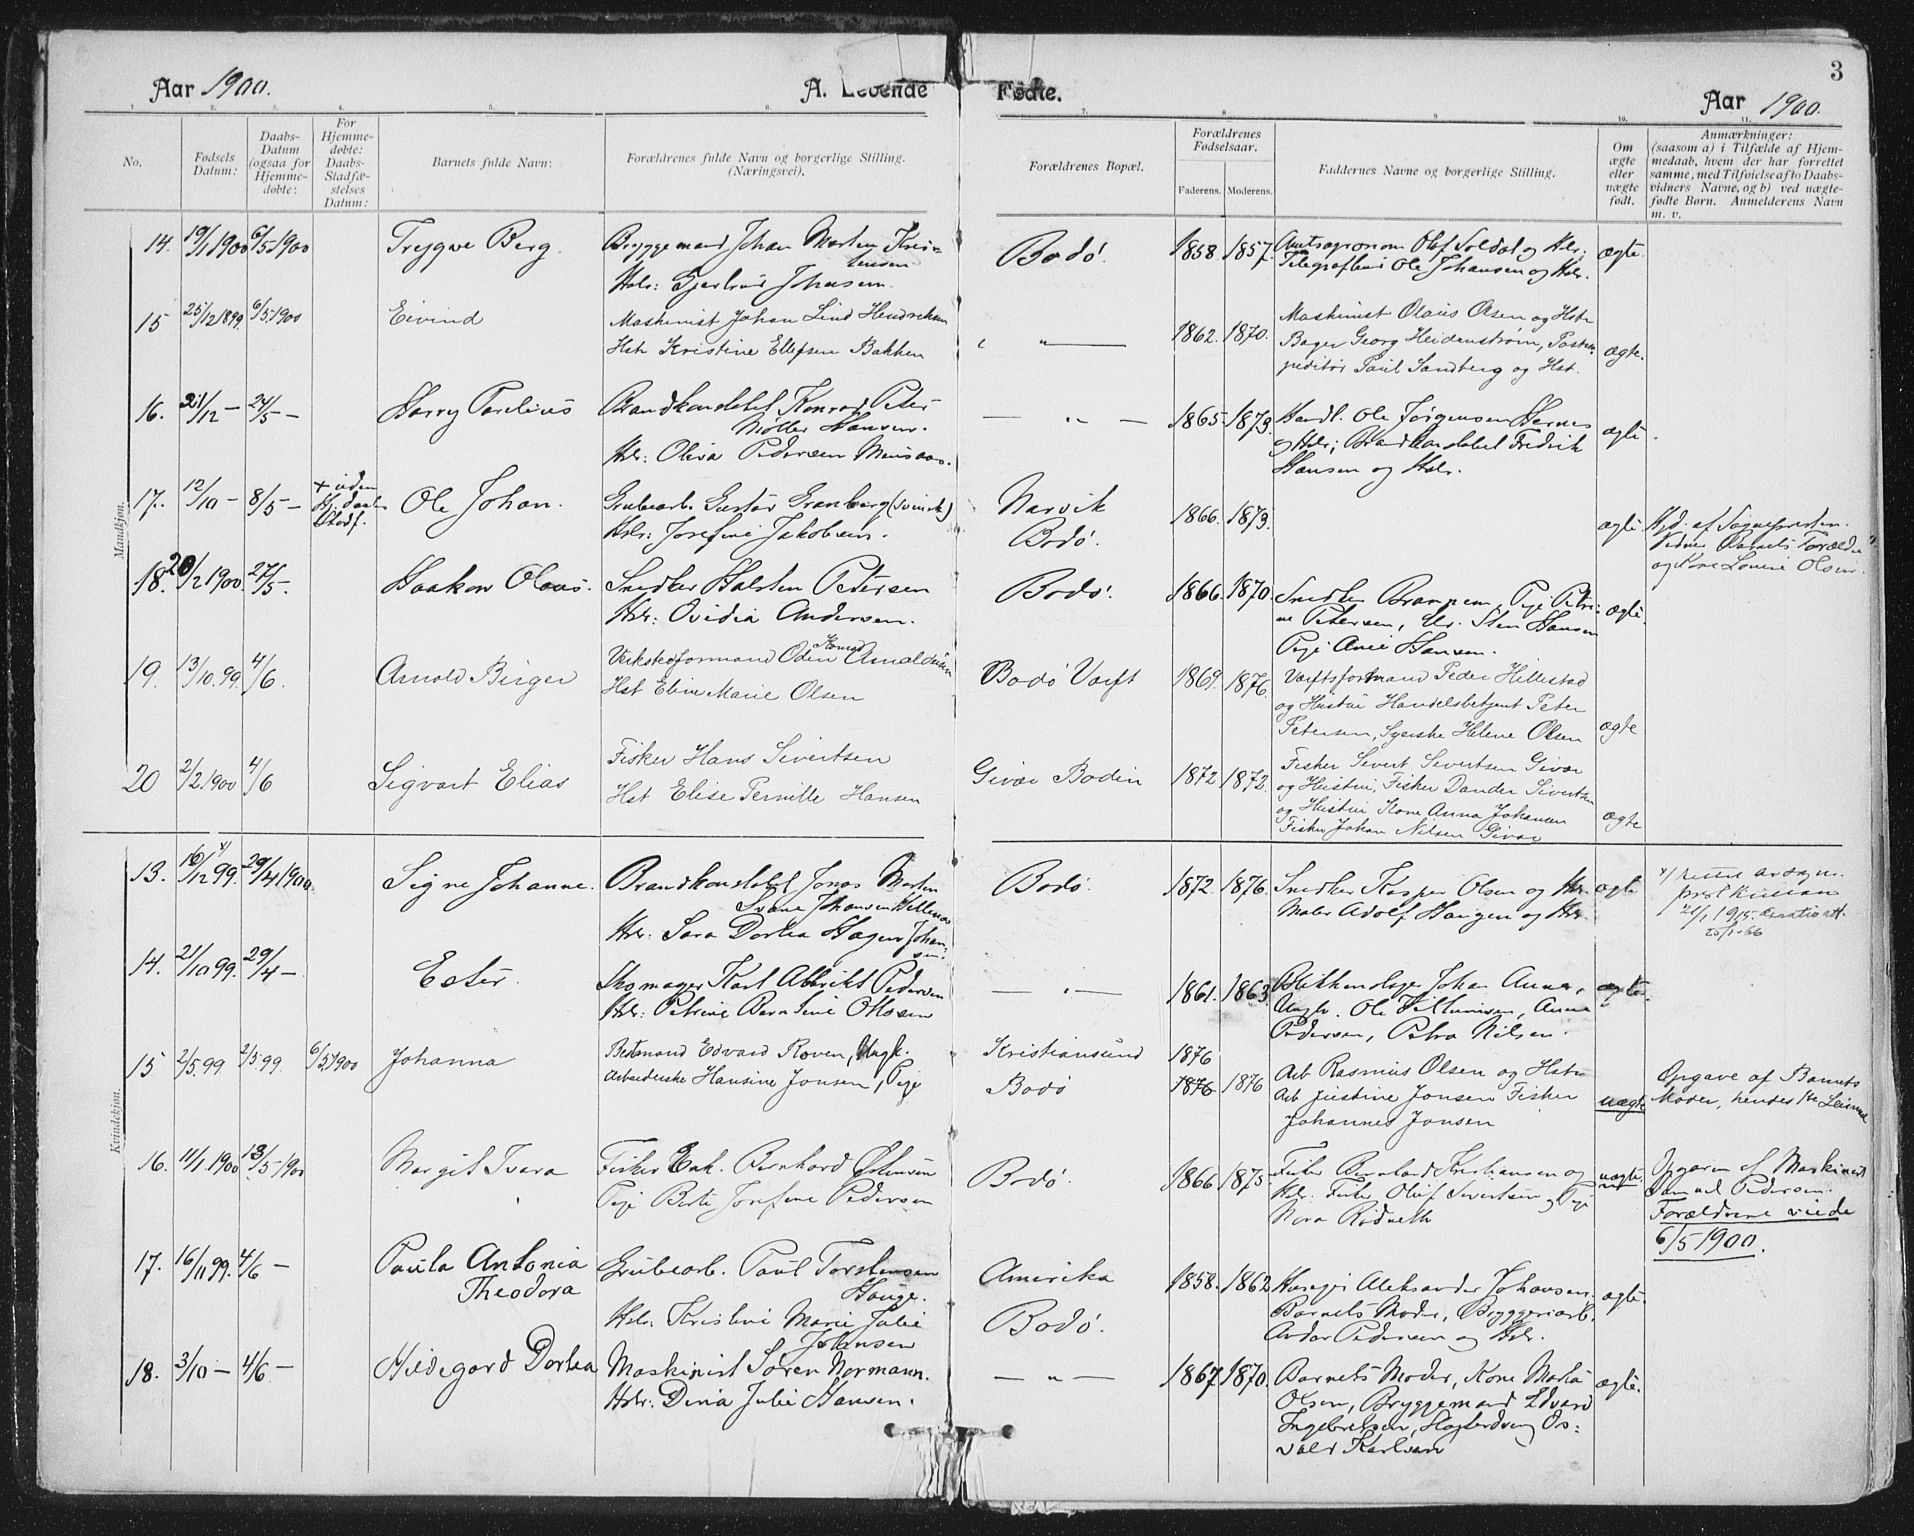 Aar 1900. A. Levende Fødte. Aar 1900. 3
1. 2. 3. 4. 5. 6. 7. 8. 9. 10. 11.
No.
Fødsels Datum:
Daabs-Datum (ogsaa for Hjemme-døbte:
For Hjemme-døbte: Daabs-Stadfæ-stelses Datum:
Barnets fulde Navn:
Forældrenes fulde Navn og borgerlige Stilling. (Næringsvei).
Forældrenes Bopæl.
Forældrenes Fødselsaar.
Faderens. Moderens.
Faddernes Navne og borgerlige Stilling.
Om ægte eller uægte født.
Anmærkninger:
(saasom a) i Tilfælde af Hjem-
medaab, hvem der har forrettet
samme, med Tilføielse af to Daabs-
vidners Navne, og b) ved uægte-
fødte Børn. Anmelderens Navn
m. v.
Mandkjøn.
14. 19/1 1900 6/5 1900 Trygve Berg. Bryggemand Johan Morten Kris-
tensen
Hstr: Gjertrud Johnsen. Bodø. 1858. 1857. Amtsagronom Olaf Soldal og Hstr.
Telegrafbud Ole Johansen og Hstr. ægte.
15 25/12 1899 6/5 1900 Eivind Maskinist Johan Lind Hendriksen
Hst. Kristine Ellefsen Bakken " 1862. 1870. Maskinist Olaus Olsen og Hstr
Bager Georg Heidenstrøm, Postex-
peditør Paul Sandberg og Hst. ægte.
16. 21/12 — 24/5 — Harry Parelius Brandkonstabel Konrad Peter
Møller Hansen.
Hstr: Oliva Pedersen Monsaas. — " — 1865. 1873. Handl. Ole Jørgensen Hernes
og Hstr; Brandkonstabel Fredrik
Hansen og Hstr. ægte.
17. 12/10 — 8/5 — + uden Hj. daabs Stadf. Ole Johan. Grubearb. Gustav Granberg (svensk)
Hstr: Josefine Jakobsen. Narvik
Bodø. 1866. 1873. ægte Hjd. af Sognepresten.
Vidner Barnets Forældre
og Kone Lovise Olsen.
18. 20/2 1900. 27/5. Haakon Olaus. Snedker Halsten Petersen
Hstr: Ovidia Andersen. Bodø. 1866. 1870. Snedker, Pige Petri-
ne Petersen, Sten Hansen
Pige Anne Hansen. ægte.
19. 13/10.99. 4/6. Arnold Birger Verkstedformand Odin Konrad Arnoldussen
Hst Eline Marie Olsen Bodø Værft 1869. 1876. Værftsformand Peder Hillestad
og Hustru Handelsbetjent Peter
Petersen, Syerske Helene Olsen ægte
20 2/2 1900 4/6 Sigvart Elias Fisker Hans Sivertsen
Hst Elise Pernille Hansen Givær Bodin 1872 1872. Fisker Sivert Sivertsen Givær
og Hustru, Fisker Sivertsen
og Hustru Kone Anna Johansen
Fisker Johan Nilsen Givær ægte
Kvindekjøn.
13. 16/12 99. x) 29/4 1900. Signe Johanne. Brandkonstabel Jonas Morten
Svane Johansen
Hstr: Sara Dortea Hagen Johan-
sen. Bodø. 1872. 1876. Snedker Kasper Olsen og Hstr.
Maler Adolf Haugen og Hstr. ægte x)
21/1 1915.
25/1-66
14. 21/10 99. 29/4 — Ester. Skomager Karl Albrikt Pedersen
Hstr: Petrine Berntine Ottosen — " — 1861. 1863. Blikkenslager Johan
Ungk. Ole Anna
Pedersen, Petra Nilsen. ægte.
15 2/5.99 2/5.99. 6/5 1900 Johanna Bestmand Edvard Roven, Ungk.
Arbeiderske Hansine Jonsen, Pige Kristiansund
Bodø 1876
1876 1876 Arb Rasmus Olsen og Hstr
Arb Justine Jonsen Fisker
Johannes Jonsen uægte Opgave af Barnets
Moder, hendes 1ste
16. 11/1.1900 13/5-1900 Margit Tvara Fisker Enk. Bernhard Østensen
Pige Berte Josefine Pedersen Bodø. 1866 1875. Fisker Bernhard Kristiansen og
Hstr. Fisker Oluf Sivertsen og Pige
Nora Rødseth uægte. Opgaven af Maskinist
Samuel Pedersen.
Forældrene viede
6/5 1900.
17. 16/11 99. 4/6 — Paula Antonia
Theodora Grubearb. Paul Torstensen
Hauge.
Hstr. Kristine Marie Julie
Johansen Amerika
Bodø. 1858. 1862 Aleksander Johansen.
Barnets Moder, Bryggeriarb.
Pedersen og Hstr. ægte.
18. 3/10 — 4/6 — Hildegard Dortea Maskinist Søren Normann.
Hstr: Dina Julie Hansen. — " — 1867 1870. Barnets Moder, Kone
Olsen, Bryggemand Edvard
Ingebretsen, Os-
vald Karlsen ægte.